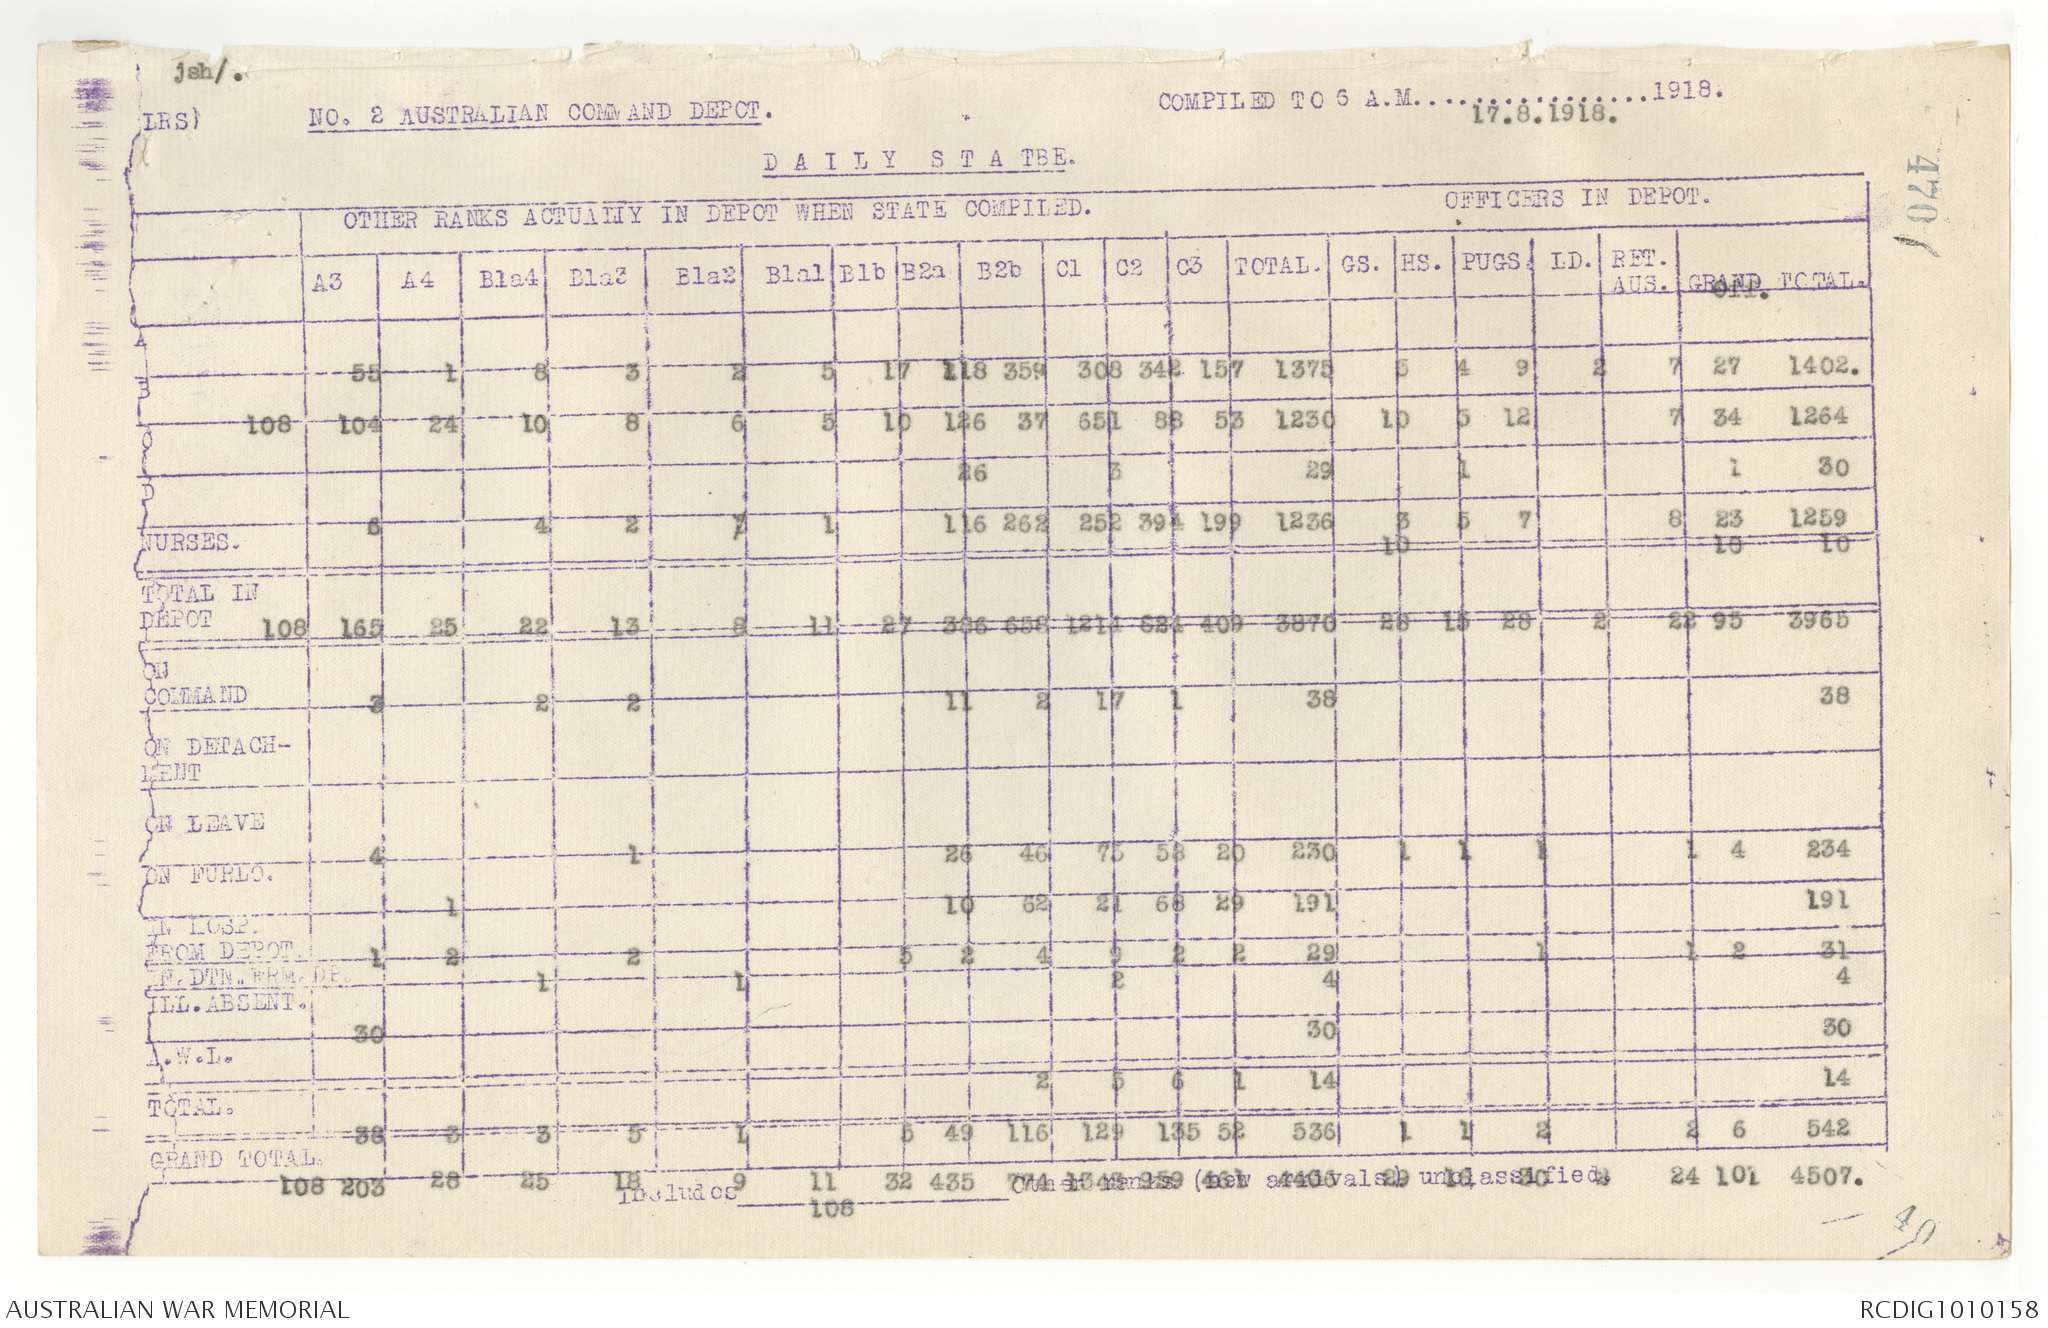 jsh/.
LRS)
NO. 2 AUSTRALIAN COMMAND DEPOT.
COMPILED TO 6 A.M...................1918.
17.8.1918.
D A I L Y S T A TBE.
470
OTHER RANKS ACTUALLY IN DEPOT WHEN STATE COMPILED. OFFICERS IN DEPOT.
A3 A4 B1a4 B1a3 B1a2 B1a1 B1b B2a B2b C1 C2 C3 TOTAL. GS. HS. PUGS. LD. RET. AUS. GRAND TOTAL.
Off.
A 55 1 8 3 2 5 17 118 359 308 342 157 1375 5 4 9 2 7 27 1402.
B 108 104 24 10 8 6 5 10 126 37 651 88 53 1230 10 5 12 7 34 1264
C 26 3 29 1 1 30
D 6 4 2 1 116 262 252 394 199 1236 3 5 7 8 23 1259
NURSES. 10 10 10
TOTAL IN
DEPOT 108 165 25 22 13 8 11 27 386 658 1214 824 409 3870 28 15 28 2 22 95 3965
ON
COMMAND 3 2 2 11 2 17 1 38 38
ON DETACH-
MENT
ON LEAVE 4 1 26 46 75 58 20 230 1 1 1 1 4 234
ON FURLO. 1 10 62 21 68 29 191 191
IN HOSP.
FROM DEPOT. 1 2 2 5 2 4 9 2 2 29 1 1 2 31
IN.DTN.FRM.DP. 1 1 2 4 4
ILL.ABSENT. 30 30 30
A.W.L. 2 5 6 1 14 14
TOTAL. 38 3 3 5 1 5 49 116 129 135 52 536 1 1 2 2 6 542
GRAND TOTAL. 108 203 28 25 18 9 11 32 435 774 1343 959 461 4406 29 16 30 2 24 101 4507.
Includes 108 Other ranks (new arrivals) unclassified.
AUSTRALIAN WAR MEMORIAL
RCDIG1010158